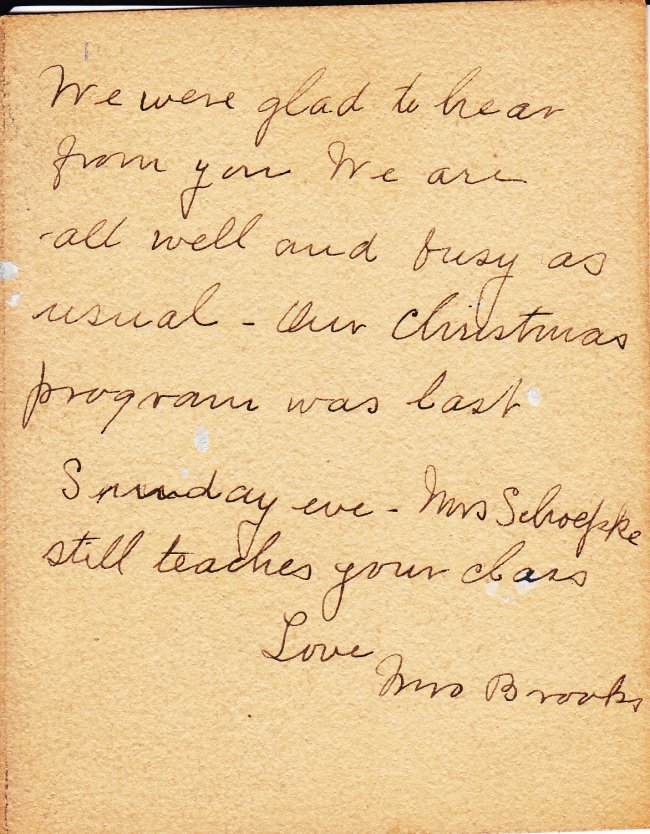 We were glad to hear
from you We are
all well and busy as
usual - Our Christmas
program was last
Sunday eve - Mrs Schoepke
still teaches your class
Love
Mrs Brooks